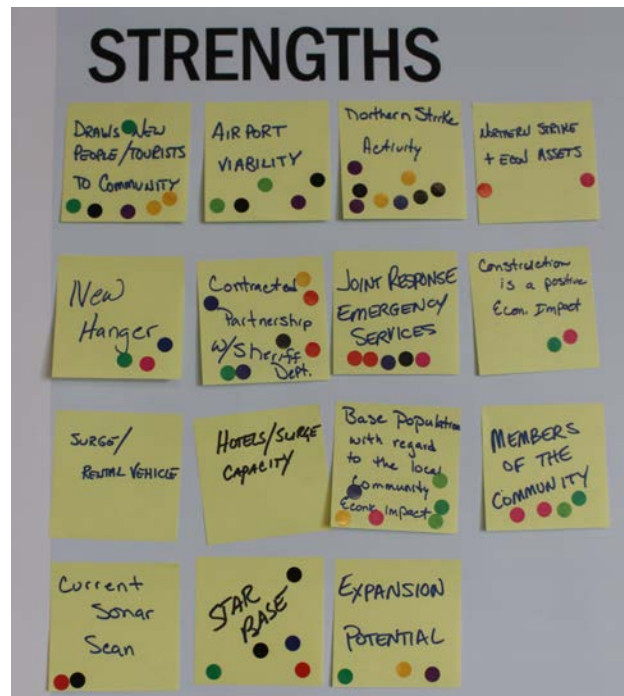 STRENGTHS
DRAWS NEW
PEOPLE/TOURISTS
TO COMMUNITY
AIRPORT
VIABILITY
Northern Strike
Activity
NORTHERN STRIKE
+ ECON ASSETS
New
Hanger
Contracted
Partnership
w/Sheriff
Dept.
JOINT RESPONSE
EMERGENCY
SERVICES
Construction
is a positive
Econ. Impact
SURGE/
RENTAL VEHICLE
HOTELS/SURGE
CAPACITY
Base Population
with regard
to the local
Community
Econ impact
MEMBERS
OF THE
COMMUNITY
Current
Sonar
Scan
STAR
BASE
EXPANSION
POTENTIAL